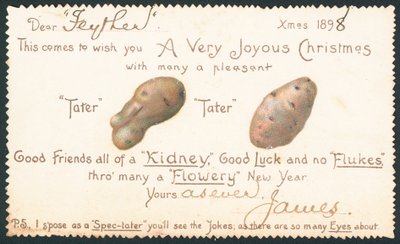 Dear "Feyther". Xmas 1898
This comes to wish you A Very Joyous Christmas
with many a pleasant
"Tater" "Tater"
Good Friends all of a "Kidney," Good Luck and no "Flukes,"
thro' many a "Flowery" New Year.
Yours as ever.
James.
P.S. I spose as a "Spec-tater" you'll see the Jokes, as there are so many Eyes about.